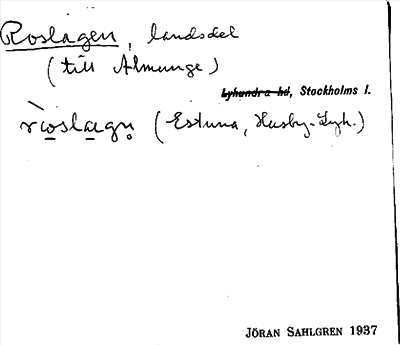 Roslagen, landsdel
(till Almunge)
Lyhundra hd, Stockholms l.
ròslagn (Estuna, Husby-Lyh.)
JÖRAN SAHLGREN 1937